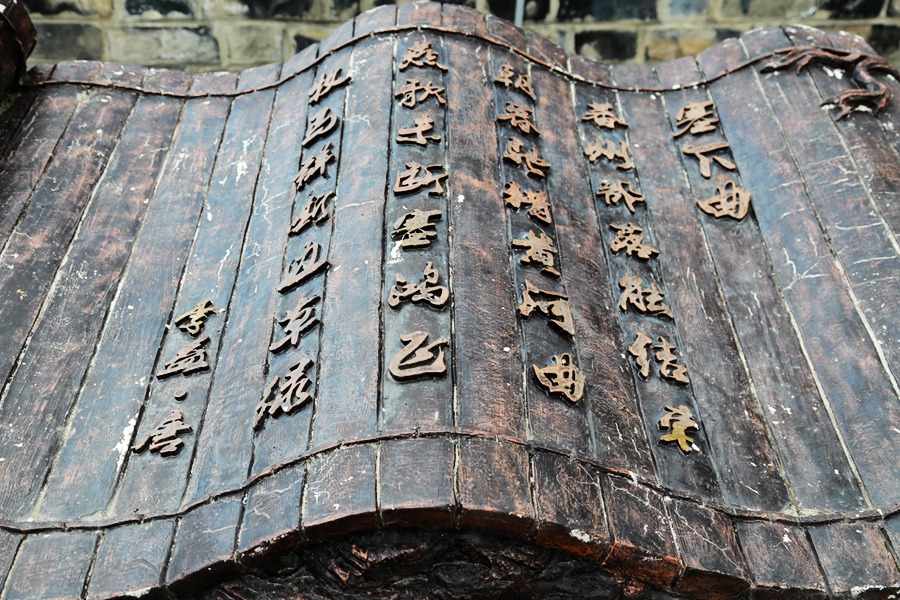 塞下曲
蕃州部落能结束
朝暮驰猎黄河曲
燕歌未断塞鸿飞
牧马群嘶边草绿
李益·唐